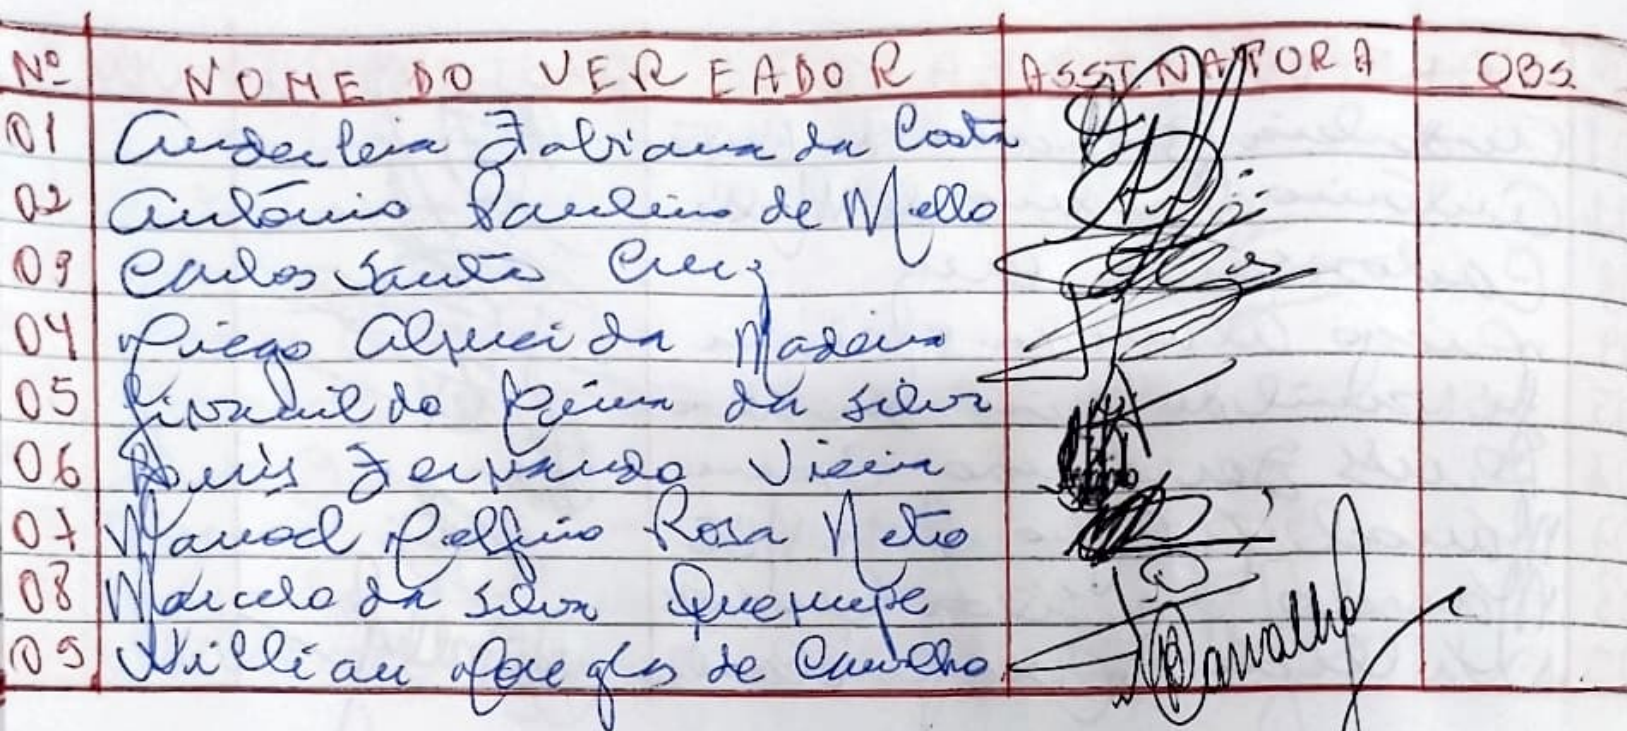 Nº NOME DO VEREADOR ASSINATURA OBS.
01 Anderleia Fabiana da Costa
02 Antônio Paulino de Mello
03 Carlos Santa Cruz
04 Diego Almeida Madeira
05 Givanildo da Silva
06 Luís Fernando Vieira
07 Manoel Delfino Rosa Neto
08 Marcelo da Silva
09 Willian Douglas de Carvalho Carvalho